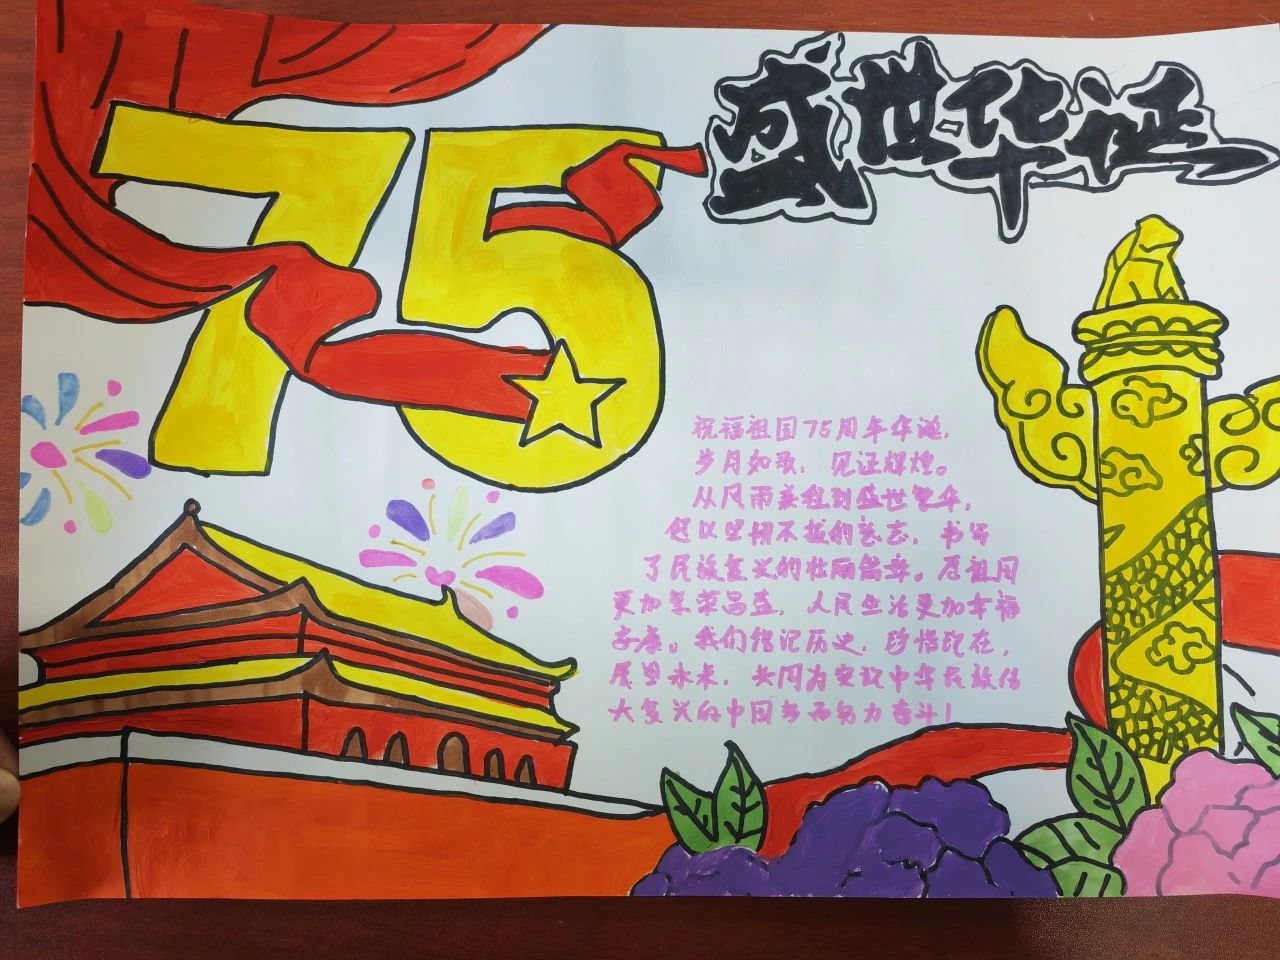 75
盛世华诞
祝福祖国75周年华诞,
岁月如歌,见证辉煌。
从风雨兼程到盛世繁华,
您以坚韧不拔的意志,书写
了民族复兴的壮丽篇章。愿祖国
更加繁荣昌盛,人民生活更加幸福
安康。我们铭记历史,珍惜现在,
展望未来,共同为实现中华民族伟
大复兴的中国梦而努力奋斗!